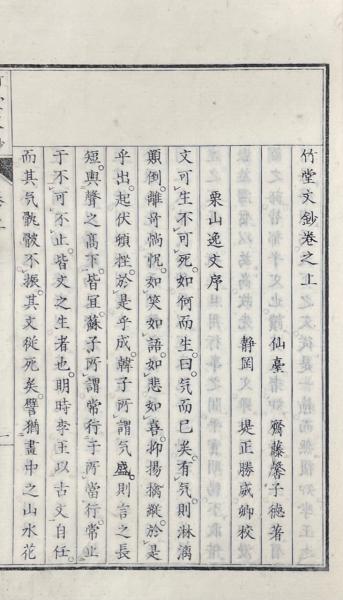 竹堂文鈔卷之上
仙臺 齋藤馨子德著
靜岡 堤正勝威卿校
栗山逸文序
文可生不可死。如何而生。曰気而已矣。有気則淋漓
顛倒。離奇惝怳。如笑如語。如悲如喜。抑揚擒縱。於是
乎出。起伏頓挫。於是乎成。韓子所謂気盛。則言之長
短。與聲之高下。皆宜。蘇子所謂常行于所當行。常止
于不可不止。皆文之生者也。明時李王以古文自任。
而其気骯骸不振。其文從死矣。譬猶畫中之山水花